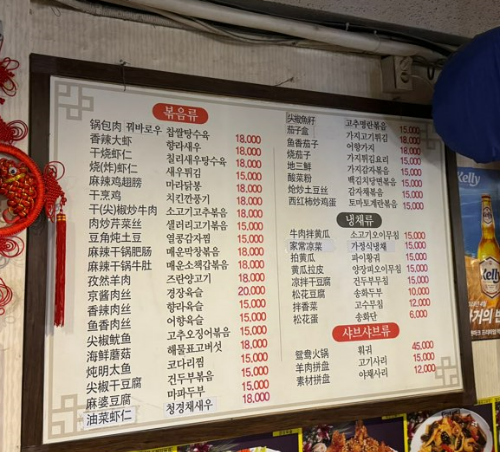 볶음류
锅包肉 꿔바로우 찹쌀탕수육 18,000
香辣大虾 향라새우 18,000
干烧虾仁 칠리새우탕수육 18,000
烧(炸)虾仁 새우튀김 15,000
麻辣鸡翅膀 마라닭봉 18,000
干烹鸡 치킨깐풍기 18,000
干(尖)椒炒牛肉 소고기고추볶음 18,000
肉炒芹菜丝 샐러리고기볶음 15,000
豆角炖土豆 열콩감자찜 15,000
麻辣干锅肥肠 매운막창볶음 18,000
麻辣干锅牛肚 매운소깩양볶음 18,000
孜然羊肉 즈란양고기 20,000
京酱肉丝 경장육슬 15,000
香辣肉丝 향라육슬 15,000
鱼香肉丝 어향육슬 15,000
尖椒鱿鱼 고추오징어볶음 15,000
海鲜蘑菇 해물표고버섯 18,000
炖明太鱼 코다리찜 15,000
尖椒干豆腐 건두부볶음 15,000
麻婆豆腐 마파두부 15,000
油菜虾仁 청경채새우 18,000
尖椒鱼籽 고추명란볶음 15,000
茄子盒 가지고기튀김 18,000
鱼香茄子 어향가지 15,000
烧茄子 가지튀김요리 15,000
地三鲜 가지감자볶음 15,000
酸菜粉 백김치당면볶음 15,000
炝炒土豆丝 감자채볶음 15,000
西红柿炒鸡蛋 토마토계란볶음 15,000
냉채류
牛肉拌黄瓜 소고기오이무침 15,000
家常凉菜 가정식냉채 15,000
拍黄瓜 파이황궈
黄瓜拉皮 양장피오이무침 15,000
凉拌干豆腐 건두부무침 15,000
松花豆腐 송화두부 10,000
拌香菜 고수무침 12,000
松花蛋 송화단 6,000
샤브샤브류
鸳鸯火锅 훠궈 45,000
羊肉拼盘 고기사리 15,000
素材拼盘 야채사리 15,000
Kelly